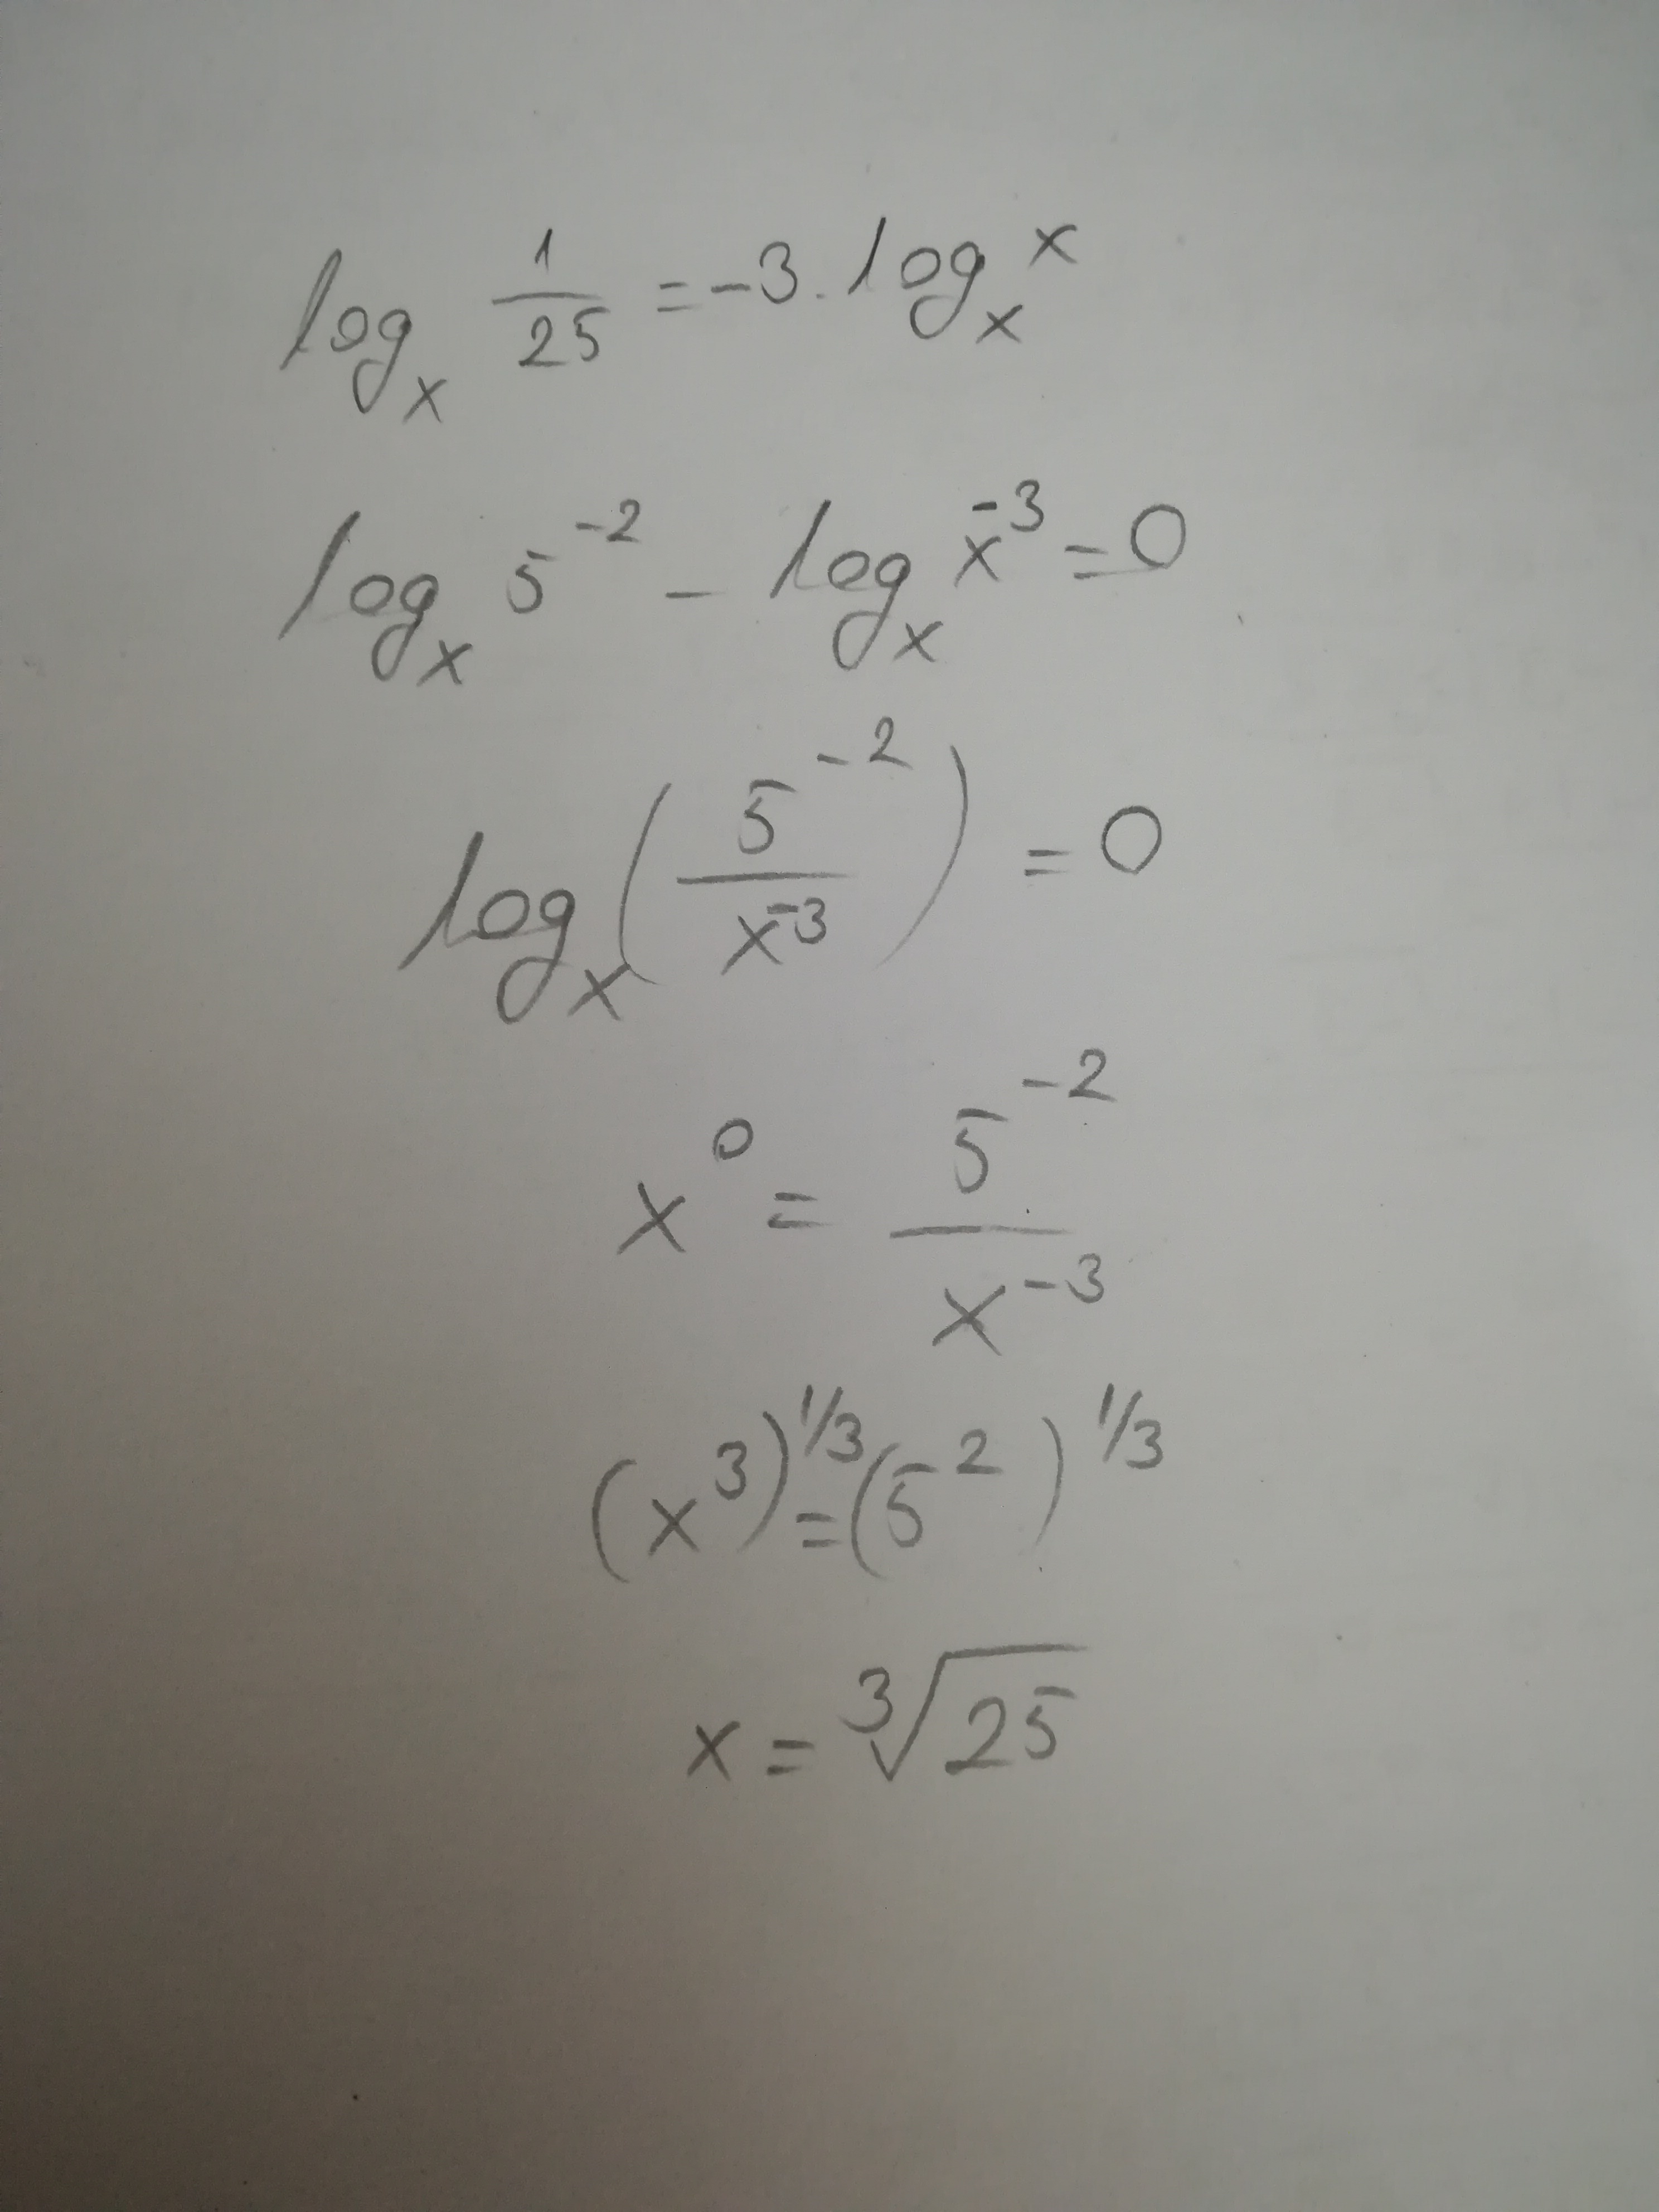 logₓ 1/25 = -3 . logₓ x
logₓ 5⁻² - logₓ x⁻³ = 0
logₓ (5⁻² / x⁻³) = 0
x⁰ = 5⁻² / x⁻³
(x³)^1/3 = (5²)^1/3
x = ∛25